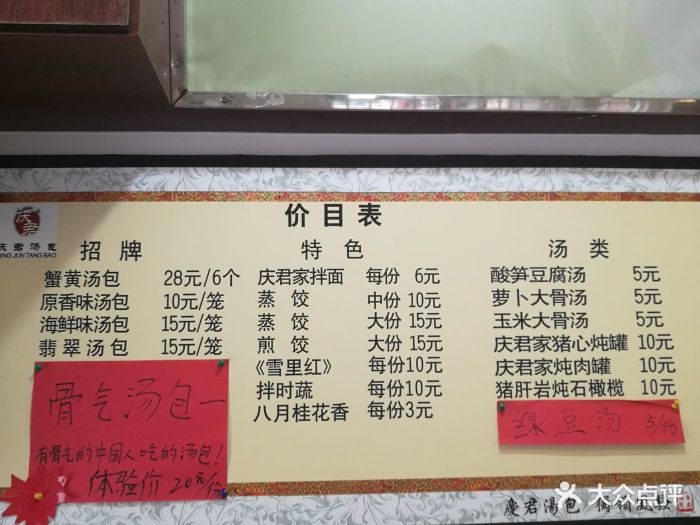 价目表
庆君
庆君汤包
QING JUN TANG BAO
招牌
蟹黄汤包 28元/6个
原香味汤包 10元/笼
海鲜味汤包 15元/笼
翡翠汤包 15元/笼
骨气汤包一
有骨气的中国人吃的汤包!
体验价20元/份
特色
庆君家拌面 每份 6元
蒸饺 中份 10元
蒸饺 大份 15元
煎饺 大份 15元
《雪里红》 每份10元
拌时蔬 每份10元
八月桂花香 每份3元
汤类
酸笋豆腐汤 5元
萝卜大骨汤 5元
玉米大骨汤 5元
庆君家猪心炖罐 10元
庆君家炖肉罐 10元
猪肝岩炖石橄榄 10元
绿豆汤 5/份
慶君湯包 獨領風騷
大众点评